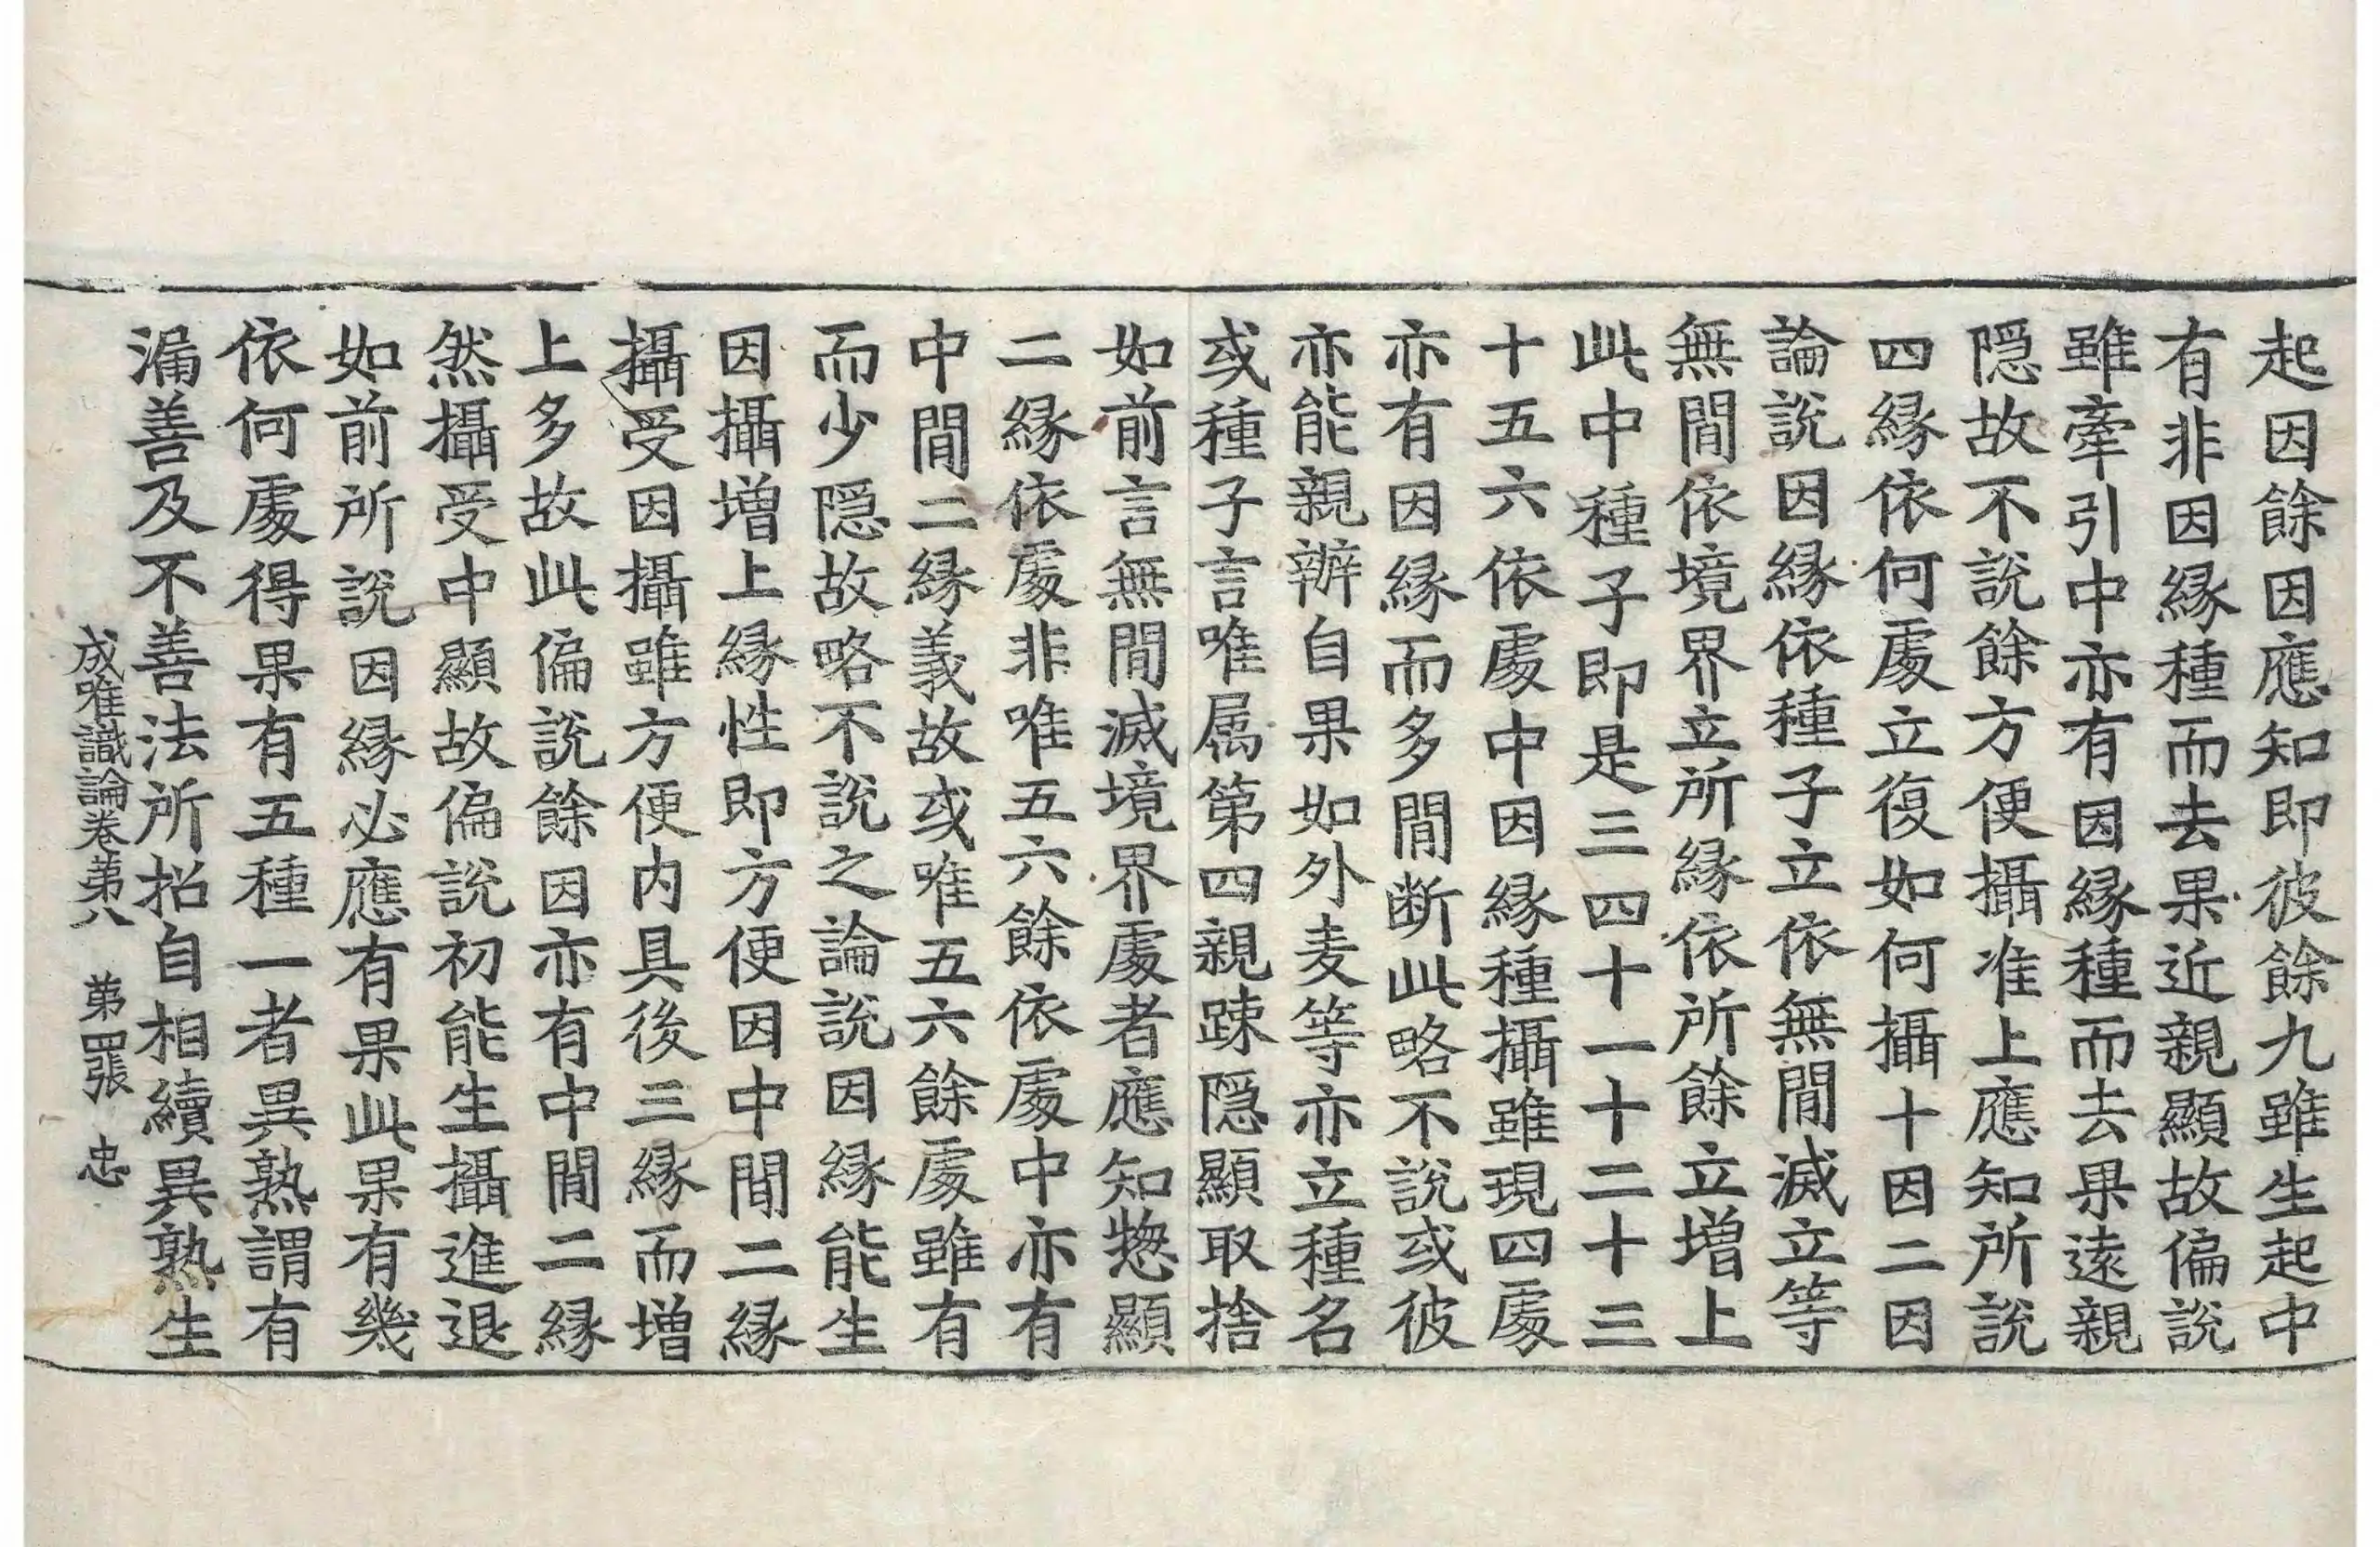 起因餘因應知即彼餘九雖生起中
有非因縁種而去果近親顯故偏說
雖牽引中亦有因縁種而去果遠親
隠故不說餘方便攝准上應知所說
四縁依何處立復如何攝十因二因
論說因縁依種子立依無間滅立等
無間依境界立所縁依所餘立增上
此中種子即是三四十一十二十三
十五六依處中因縁種攝雖現四處
亦有因縁而多間断此略不說或彼
亦能親辦自果如外麦等亦立種名
或種子言唯属第四親踈隠顯取捨
如前言無間滅境界處者應知惣顯
二縁依處非唯五六餘依處中亦有
中間二縁義故或唯五六餘處雖有
而少隠故略不說之論說因縁能生
因攝增上縁性即方便因中間二縁
攝受因攝雖方便内具後三縁而增
上多故此偏說餘因亦有中間二縁
然攝受中顯故偏說初能生攝進退
如前所說因縁必應有果此果有幾
依何處得果有五種一者異熟謂有
漏善及不善法所招自相續異熟生
成唯識論卷苐八 苐四張 忠